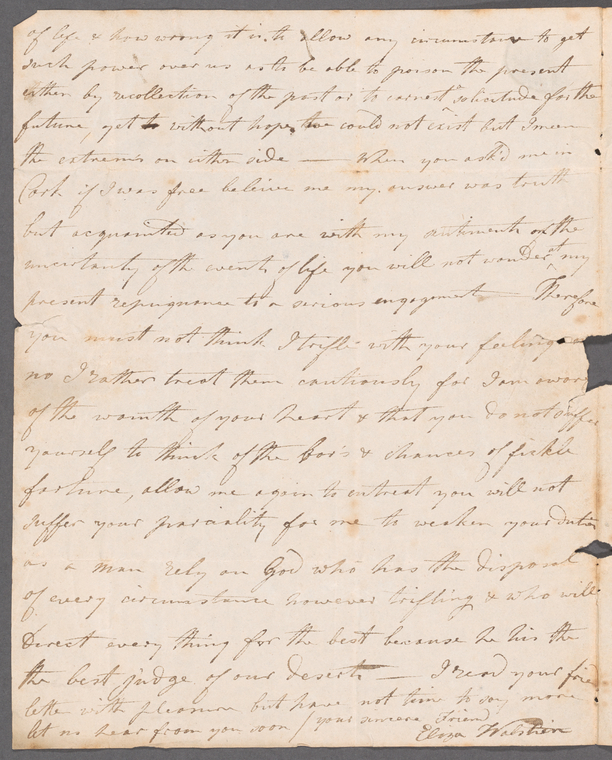 of life & how wrong it is to allow any circumstance to get
such power over us as to be able to poison the present
either by recollection of the past or to earnest solicitude for the
future, yet without hope we could not exist but I mean
the extremes on either side — When you ask'd me in
Cork if I was free beleive me my answer was truth
but acquainted as you are with my sentiments on the
uncertainty of the events of life you will not wonder at my
present repugnance to a serious engagement — Therefore
you must not think I trifle with your feelings
no I rather treat them cautiously for I am aware
of the warmth of your heart & that you do not suffer
yourself to think of the & chances of fickle
fortune, allow me again to entreat you will not
suffer your parciality for me to weaken your duties
as a man rely on God who has the disposal
of every circumstance however trifling & who will
Direct every thing for the best because he his the
the best judge of our deserts — I read your
letter with pleasure but have not time to say more
let me hear from you soon / your sincere Friend
Eliza